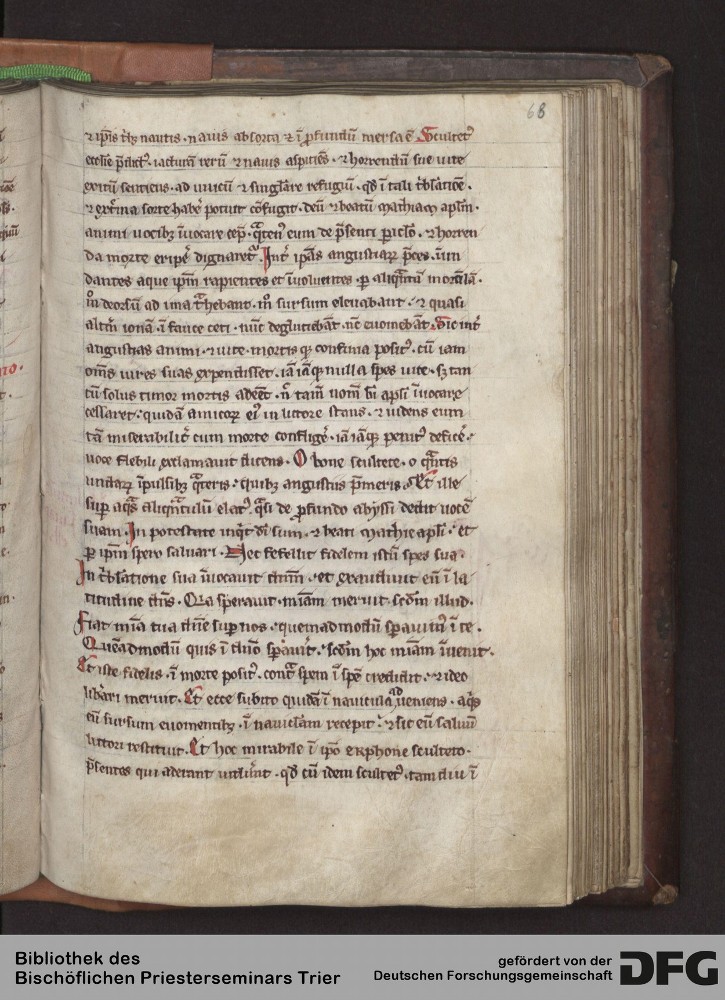 68
⁊ ip̄is trib; nautis · nauis absorta ⁊ ī ꝓfundū mersa ē Scultet᷒
eccl̄ie p̄dict᷒ · iacturā rerū ⁊ nauis aspiciēs · ⁊ horrendū sue uite
exitū sentiens · ad unicū ⁊ singl̓are refugiū · qd̄ ī tali t̓bl̓atiōe ·
⁊ ext̓ma sorte habe̓ potuit cōfugit · deū ⁊ beatū Mathiam apl̄m ·
animi uocib; īuocare cep̄ · qͣten᷒ eum de p̄senti ꝑicl̓o · ⁊ horren
da morte eripe̓ dignaret᷑ Int̓ ip̄as angustiaꝝ p̄ces · un
dantes aque ip̄m rapientes et īuoluentes · ꝑ aliqͣntū
deorsū ad ima tͣhebant · sursum eleuabant · ⁊ quasi
alt̓m ionā · ī fauce ceti · nūc deglutiebāt · nc̄ euomebāt Sic int̓
angustias animi · ⁊ uite · mortis qꝫ confinia posit᷒ · cū iam
om̄s uires suas expendisset · iā iāqꝫ nulla spes uite · sꝫ tan
tū solus timor mortis adeēt · n̄ tam̄ nom̄ bī apl̄i īuocare
cessaret · quidā amicoꝝ ei᷒ in littore stans · ⁊ uidens eum
tā miserabilit̓ cum morte confligē · iā iāqꝫ penit᷒ defice̓ ·
uoce flebili exclamauit dicens · O bone scultete · o qͣntis
undaꝝ īpulsib; qͣteris · quib; angustiis p̄meris · Et ille
sup̄ aqͣs aliqͣntulū elat᷒ · qͣsi de ꝓfundo abyssi dedit uocē
suam · In potestate inqͥt dī sum · ⁊ beati Mathie apl̄i · et
ꝑ ip̄m spero saluari · Nec fefellit fidelem istū spes sua ·
In t̓bl̓atione sua īuocauit dn̄m · et exaudiuit eū ī la
titudine dn̄s · Qͥa sperauit · mīam meruit · scd̄m illud ·
Fiat mīa tua dn̄e super nos · quemadmodū spauim᷒ ī te ·
Quēadmodū quis ī dn̄o sp̄auīt · scd̄m hoc mīam īuenit ·
Et iste fidelis · ī morte posit᷒ · contͣ spem ī spē credidit · ⁊ ideo
lib̓ari meruit · Et ecce subito quidā ī nauicula ad ueniens · aqͥs
eū sursum euomentib; · ī nauicl̓am recepit · ⁊ sic eū saluū
littori restituit · Et hoc mirabile ī ip̄o scultero ·
p̄sentes qui aderant uider̄nt · qd̄ cū idem scultet᷒ · tam diu ī
Bibliothek des
Bischöflichen Priesterseminars Trier
gefördert von der
Deutschen Forschungsgemeinschaft
DFG